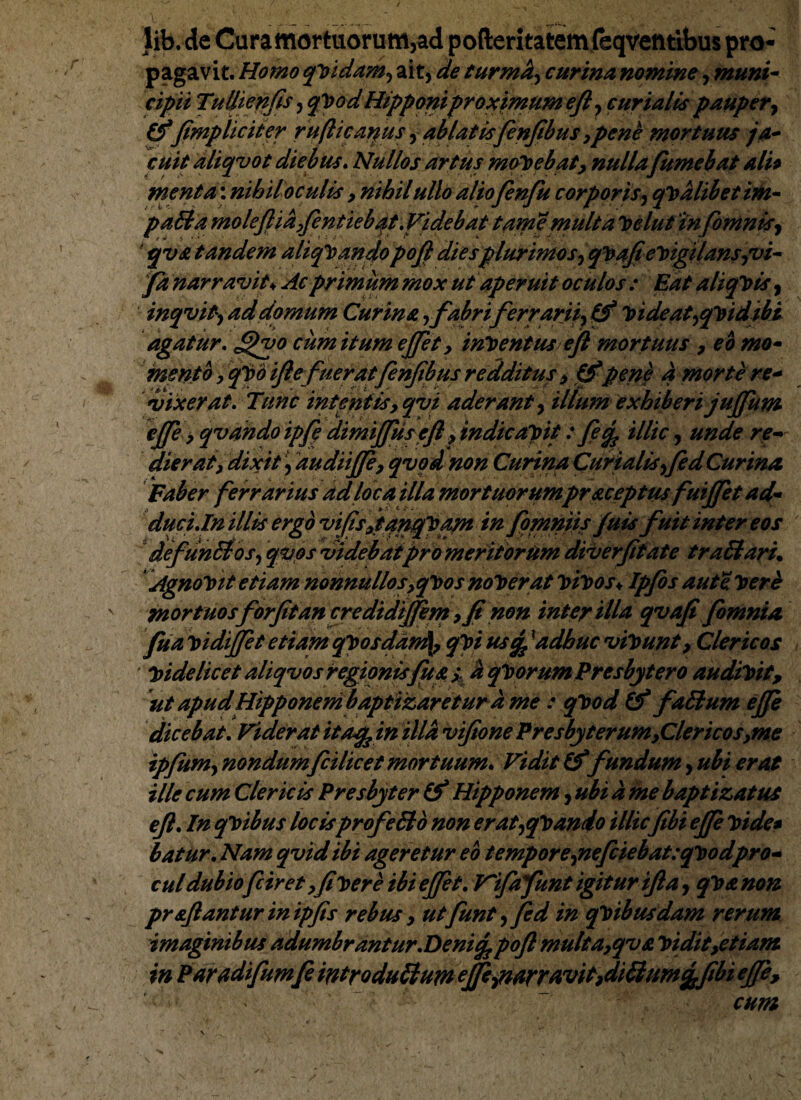 lib. de Cura mortuorum, ad posteritatem seqventibus pro-
pagavit. Homo qvidam, ait, de turmâ, curina nomine, muni-
cipii Tulliensis, qvod Hipponi proximum est, curialis pauper,
& simpliciter rusticanus, ablatis sensibus, penè mortuus ja-
cuit aliqvot diebus. Nullos artus movebat, nulla sumebat ali-
menta: nihil oculis, nihil ullo alio sensu corporis, qvâlibet im-
pacta molestiâ, sentiebat. Videbat tamē multa velut in somnis,
qvæ tandem aliqvando post dies plurimos, qvasi evigilans, vi-
sa narravit. Ac primùm mox ut aperuit oculos: Eat aliqvis,
inqvit, ad domum Curinæ, fabri ferrarii, & videat, qvid ibi
agatur. Qvo cùm itum esset, inventus est mortuus, eò mo-
mentò, qvò iste fuerat sensibus redditus, & penè à morte re-
vixerat. Tunc intentis, qvi aderant, illum exhiberi jussum
esse, qvando ipse dimissus est, indicavit: seqꝫ illic, unde re-
dierat, dixit, audiisse, qvod non Curina Curialis, sed Curina
Faber ferrarius ad loca illa mortuorum præceptus fuisset ad-
duci. In illis ergò visis, tanqvam in somniis suis fuit inter eos
defunctos, qvos videbat pro meritorum diversitate tractari.
Agnovit etiam nonnullos, qvos noverat vivos. Ipsos autē verè
mortuos forsitan credidissem, si non inter illa qvasi somnia
sua vidisset etiam qvosdam, qvi usqꝫ adhuc vivunt, Clericos
videlicet aliqvos regionis suæ; à qvorum Presbytero audivit,
ut apud Hipponem baptizaretur à me: qvod & factum esse
dicebat. Viderat itaqꝫ in illâ visione Presbyterum, Clericos, me
ipsum, nondum scilicet mortuum. Vidit & fundum, ubi erat
ille cum Clericis Presbyter & Hipponem, ubi à me baptizatus
est. In qvibus locis profectò non erat, qvando illic sibi esse vide-
batur. Nam qvid ibi ageretur eò tempore, nesciebat: qvod pro-
cul dubio sciret, si verè ibi esset. Visa sunt igitur ista, qvæ non
præstantur in ipsis rebus, ut sunt, sed in qvibusdam rerum
imaginibus adumbrantur. Deniqꝫ post multa, qvæ vidit, etiam
in Paradisum se introductum esse, narravit, dictumqꝫ sibi esse,
cum